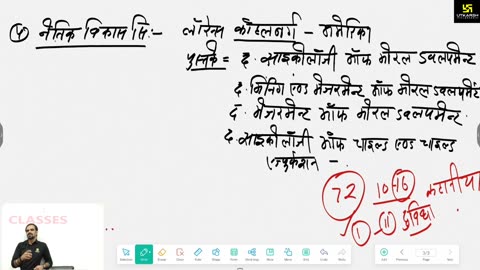 ④ नैतिक विकास सि:- लॉरेन्स कोहलबर्ग - अमेरिका
पुस्तकें = द. साइकोलॉजी ऑफ मोरल डवलपमेन्ट
द. मिनिंग एण्ड मेजरमेन्ट ऑफ मोरल डवलपमेंट
द. मेजरमेन्ट ऑफ मोरल डवलपमेन्ट.
द. साइकोलॉजी ऑफ चाइल्ड एण्ड चाइल्ड
एज्युकेशन -
72 10-16 कहानीया
① - ⑪ दुविधा
CLASSES
UTKARSH